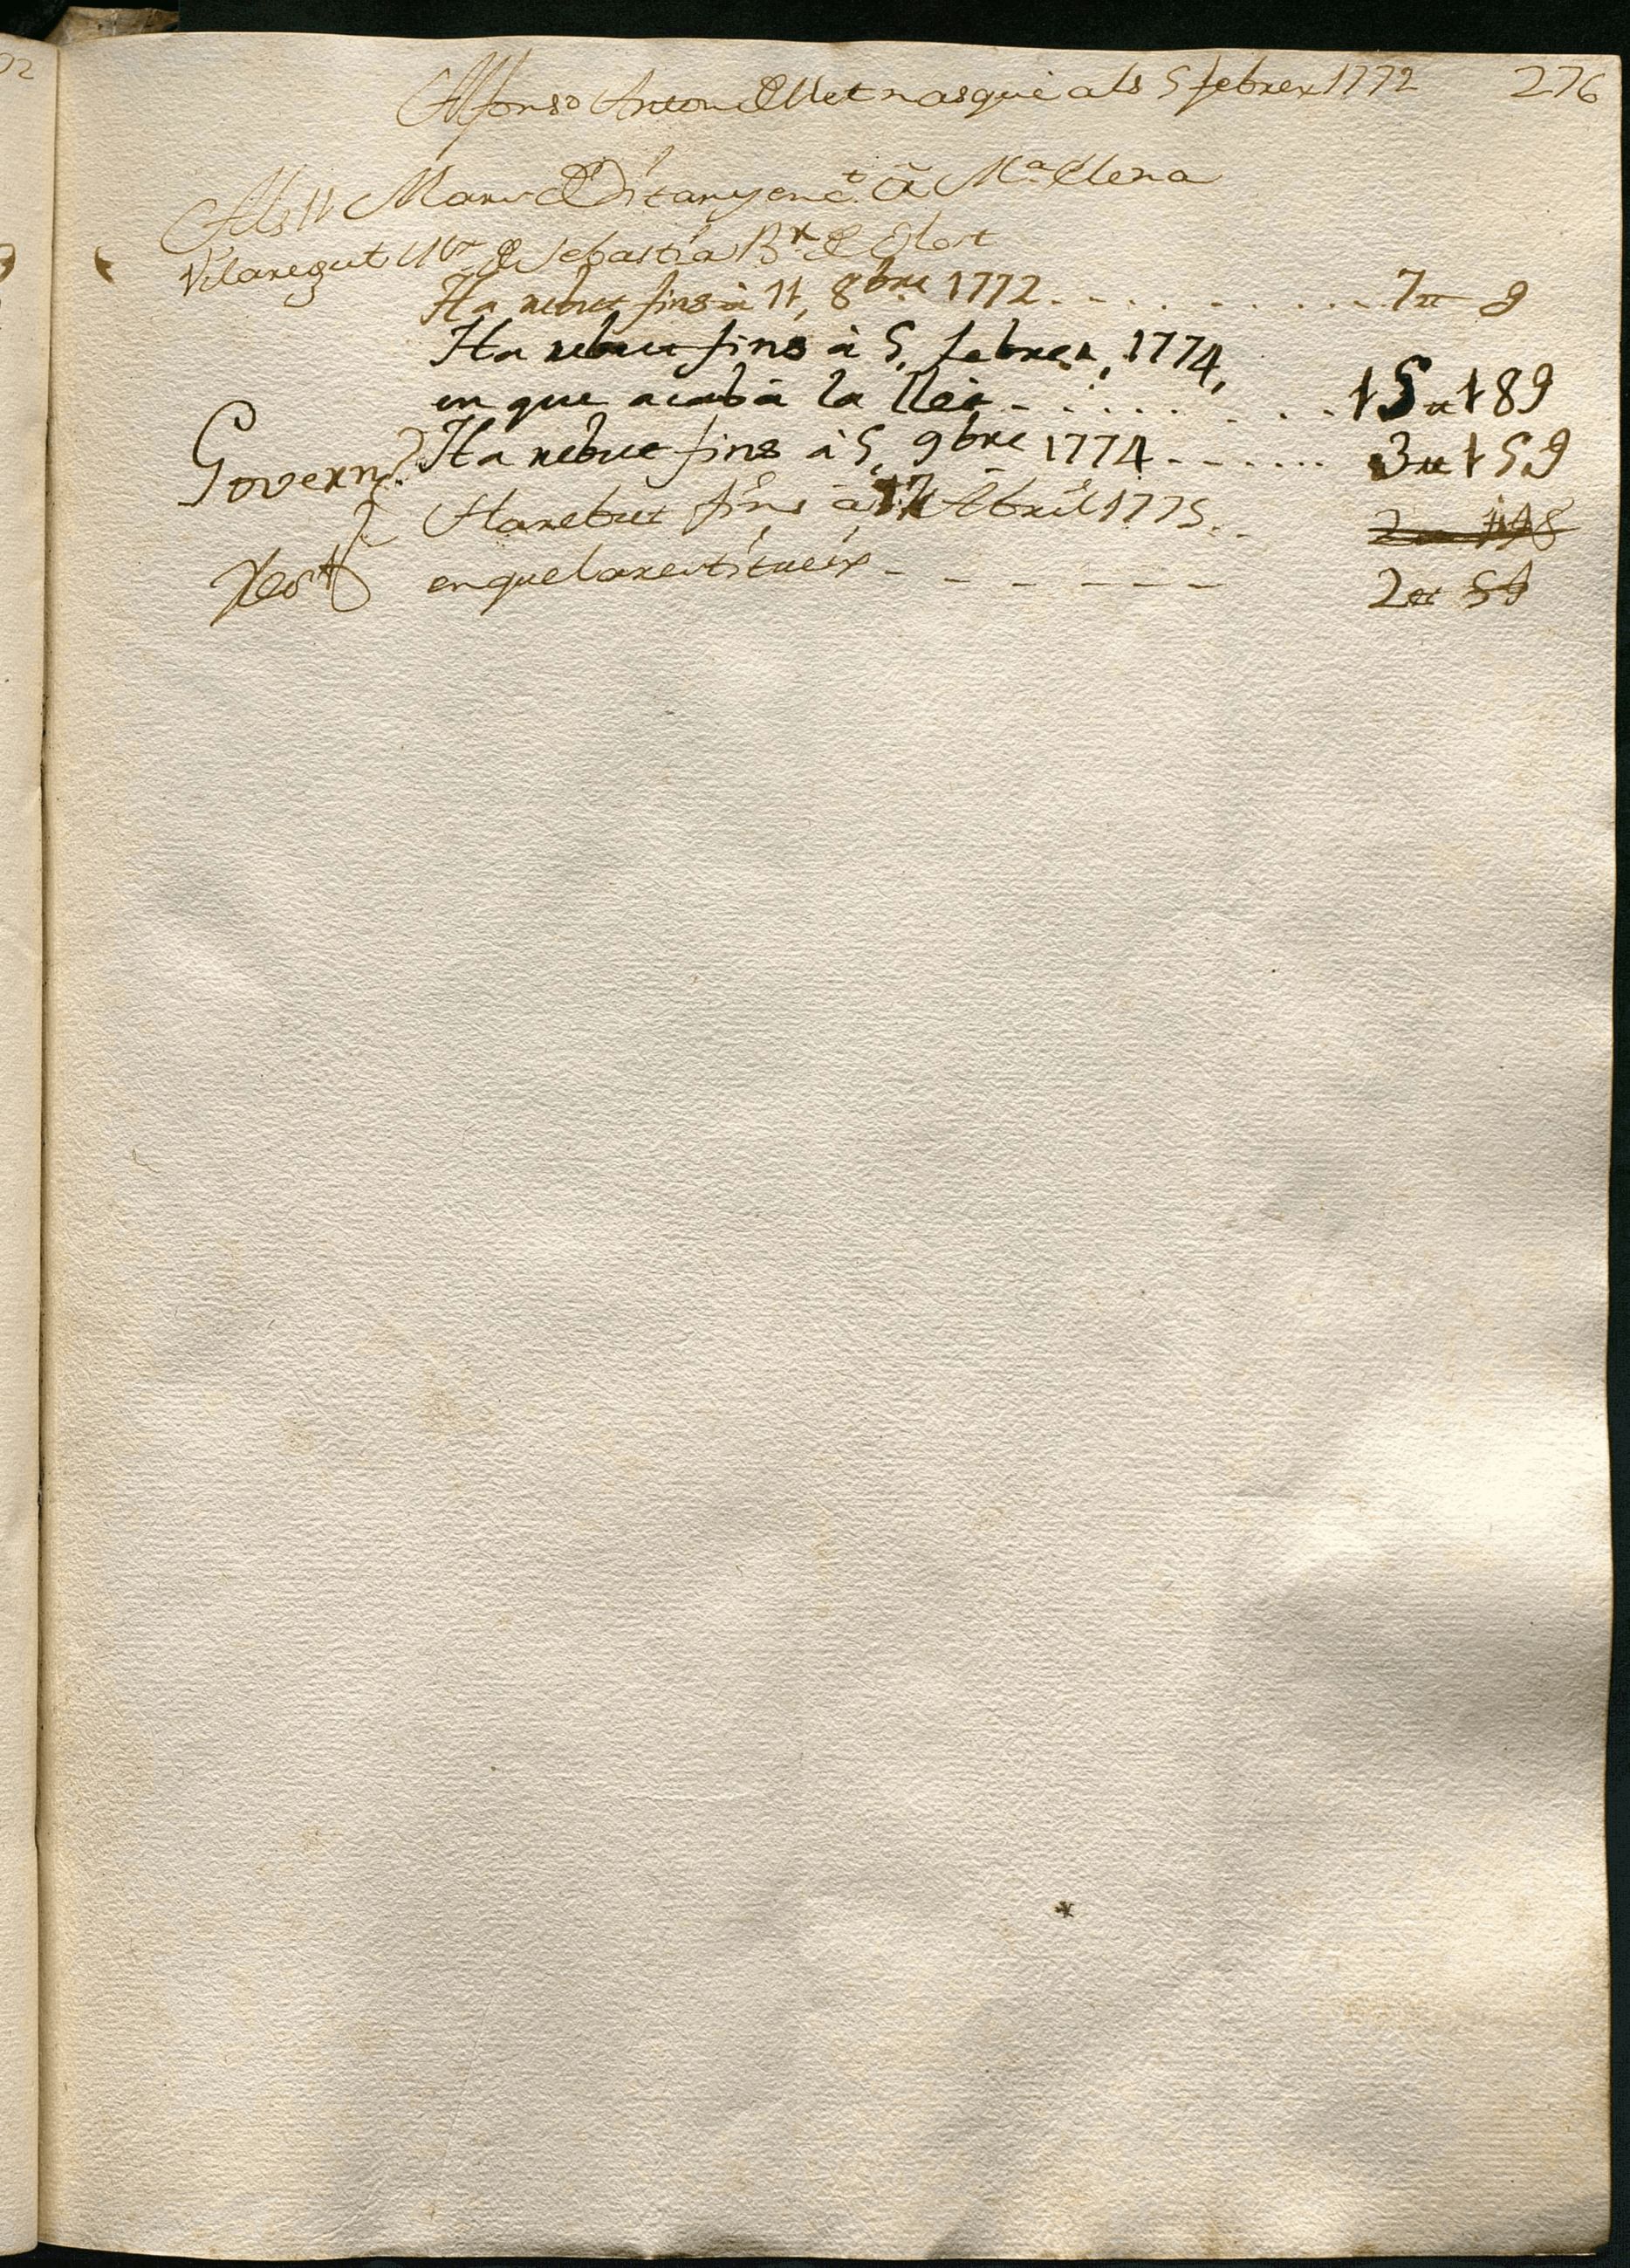 Alfonso Anton Ollet nasqué als 5 febrer 1772 276
Als 11 Mars Dit any enc.t â M.a Elena
Vilaregut Mr de Sebastiá B.r de Olot
Ha rebut fins à 11, 8bre 1772 7 ll 9
Ha rebut fins à 5, febrer, 1774,
en que acabà la llèt 15 ll 189
Govern Ha rebut fins à 5, 9bre 1774 3 ll 159
Ha rebut fins à 17 Abril 1775
Rest en que la restitueix 2 ll 5 9